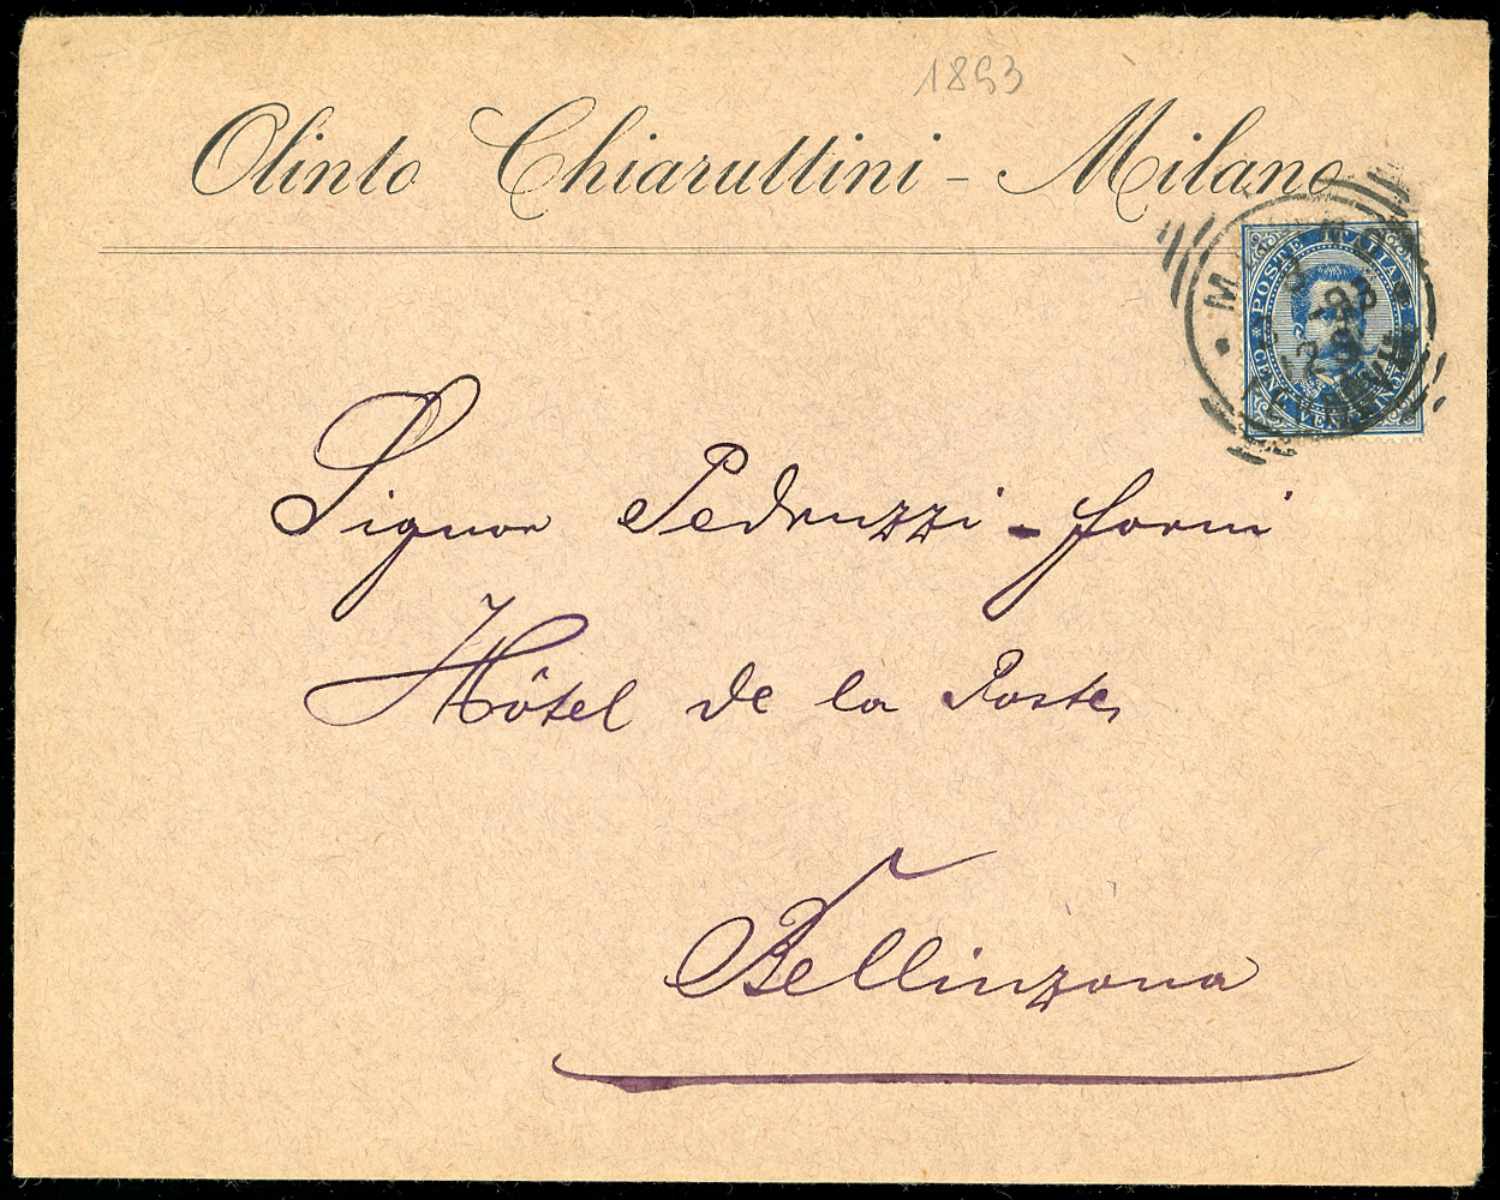 1893
Olinto Chiaruttini - Milano
POSTE ITALIANE
CENT. VENTICINQUE
Signor Pedruzzi-forni
Hôtel de la Poste,
Bellinzona